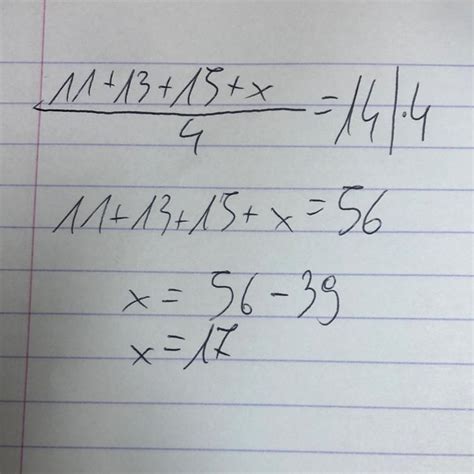 11+13+15+x / 4 = 14 |·4
11+13+15+x=56
x = 56-39
x=17